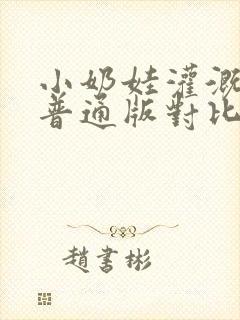 小奶娃灌溉
普通版對比
趙書彬